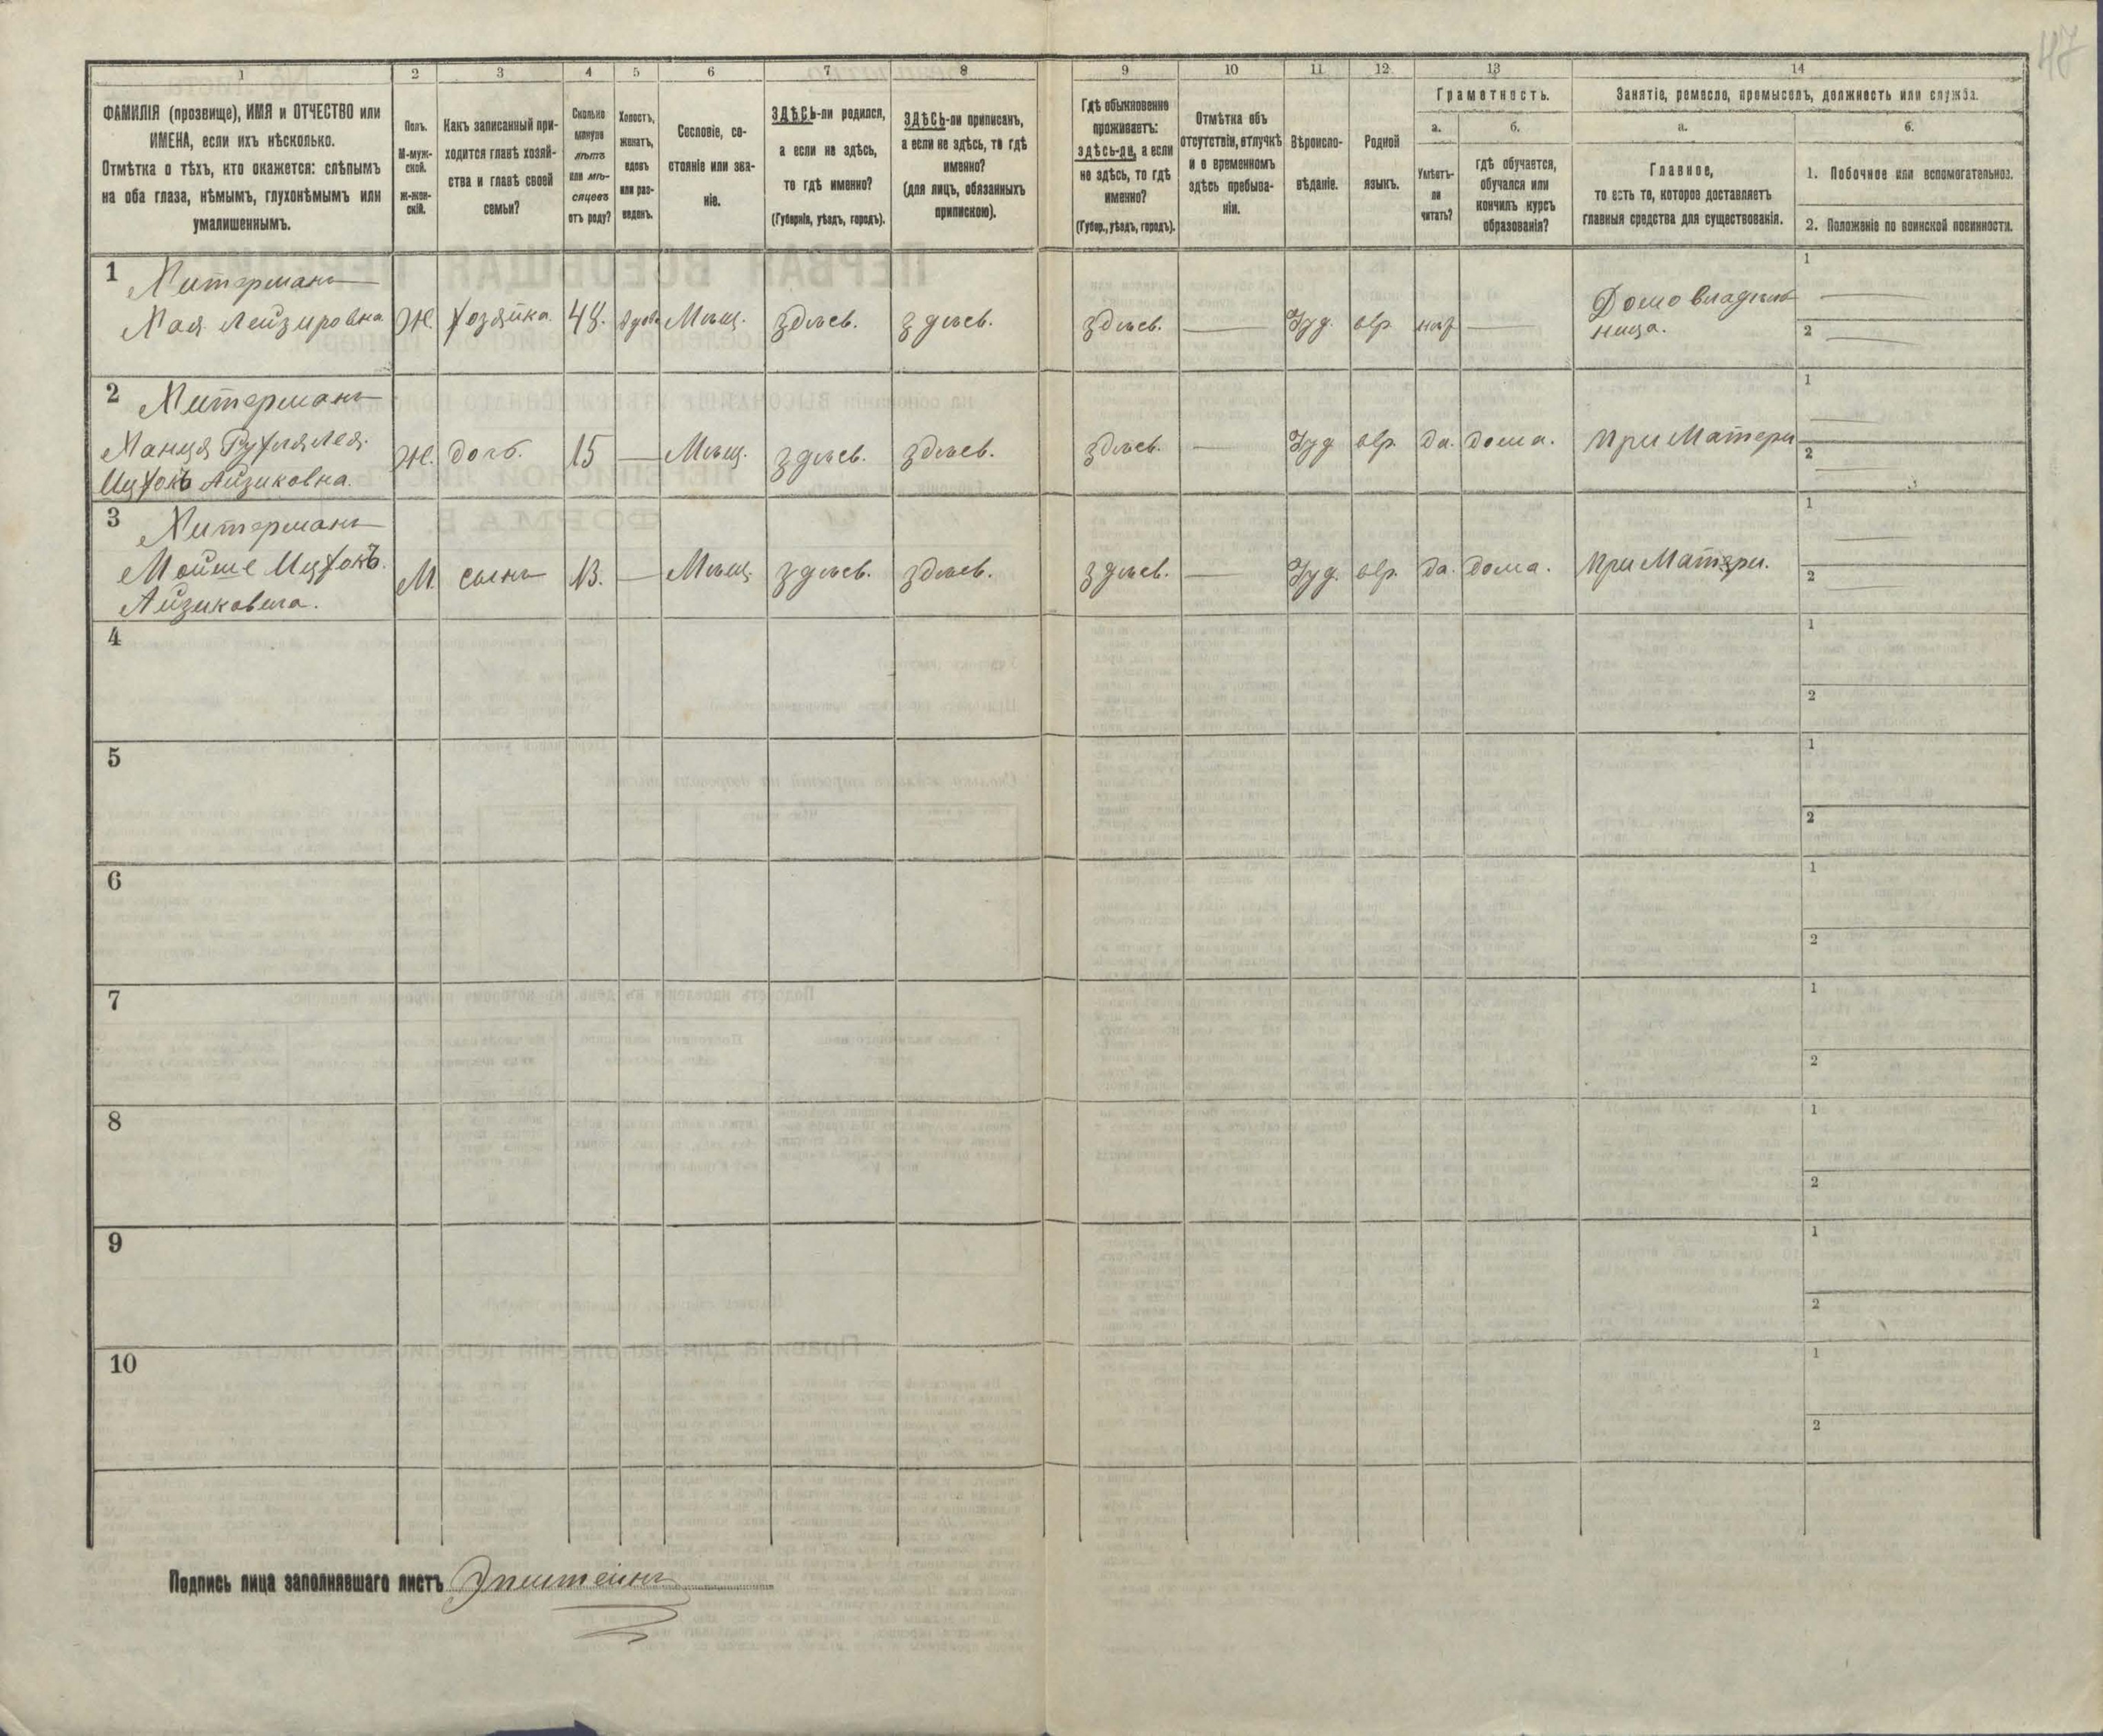 47
1 2 3 4 5 6 7 8 9 10 11 12 13 14
ФАМИЛІЯ (прозвище), ИМЯ и ОТЧЕСТВО или
ИМЕНА, если ихъ нѣсколько.
Отмѣтка о тѣхъ, кто окажется: слѣпымъ
на оба глаза, нѣмымъ, глухонѣмымъ или
умалишеннымъ.
Полъ.
М-муж-
ской.
Ж-жен-
скій.
Какъ записанный при-
ходится главѣ хозяй-
ства и главѣ своей
семьи?
Сколько
минуло
лѣтъ
или мѣ-
сяцевъ
отъ роду?
Холостъ,
женатъ,
вдовъ
или раз-
веденъ.
Сословіе, со-
стояніе или зва-
ніе.
ЗДѢСЬ-ли родился,
а если не здѣсь,
то гдѣ именно?
(Губернія, уѣздъ, городъ).
ЗДѢСЬ-ли приписанъ,
а если не здѣсь, то гдѣ
именно?
(для лицъ, обязанныхъ
припискою).
Гдѣ обыкновенно
проживаетъ:
здѣсь-ли, а если
не здѣсь, то гдѣ
именно?
(Губер., уѣздъ, городъ).
Отмѣтка объ
отсутствіи, отлучкѣ
и о временномъ
здѣсь пребыва-
ніи.
Вѣроиспо-
вѣданіе.
Родной
языкъ.
Грамотность.
а.
Умѣетъ-
ли
читать?
б.
гдѣ обучается,
обучался или
кончилъ курсъ
образованія?
Занятіе, ремесло, промыселъ, должность или служба.
а.
Главное,
то есть то, которое доставляетъ
главныя средства для существованія.
б.
1. Побочное или вспомогательное.
2. Положеніе по воинской повинности.
1 Хитерманъ
Хая Лейзеровна Ж. хозяйка 48. вдова Мѣщ. здѣсь. здѣсь. здѣсь. Іуд. евр. нѣт Домовладѣль
ница.
1
2
2 Хитерманъ
Ж. дочь. 15 Мѣщ. здѣсь. здѣсь. здѣсь. Іуд евр. да. дома. при Матери
Айзиковна.
1
2
3 Хитерманъ
Мойше Ицхокъ
Айзиковича. М. сынъ 13. Мѣщ. здѣсь. здѣсь. здѣсь. Іуд. евр. да. дома. при Матери.
1
2
4
1
2
5
1
2
6
1
2
7
1
2
8
1
2
9
1
2
10
1
2
Подпись лица заполнявшаго листъ Эпштейнъ